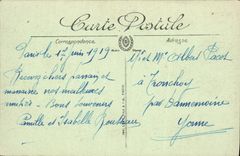 Carte Postale
Correspondance
Adresse
Paris le 1er juin 1919
Recevez chers parrain et
marraine nos meilleurs
Bons Souvenirs
Camille et Isabelle
M. et Mme Albert Pacot
à Tronchoy
par Dannemoine
Yonne